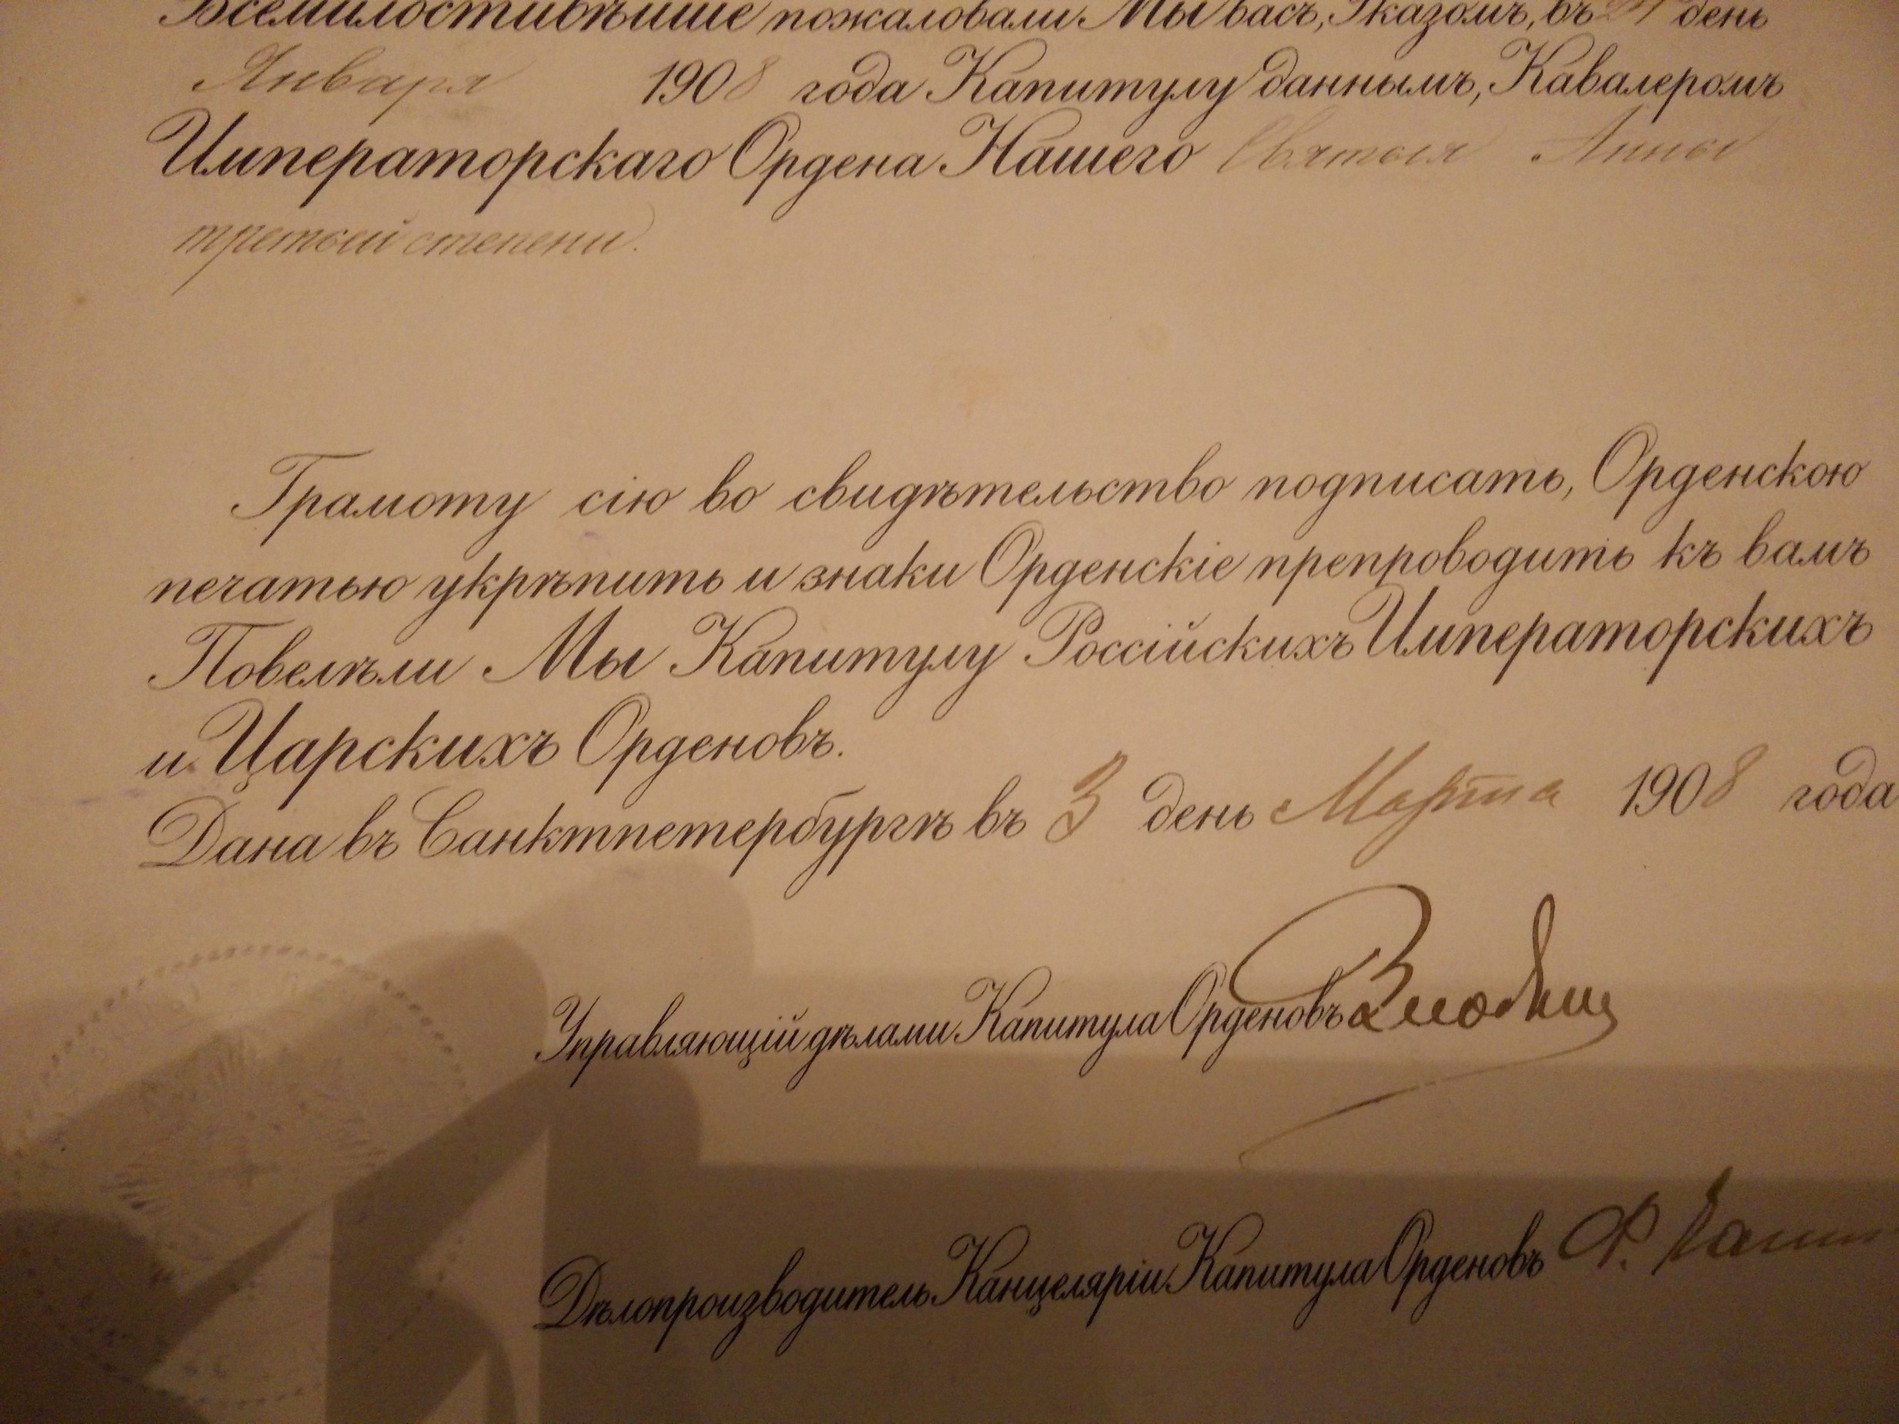 Всемилостивѣйше пожаловали Мы васъ, Указомъ, въ день
Января 1908 года Капитулу даннымъ, Кавалеромъ
Императорскаго Ордена Нашего Святыя Анны
третьей степени.
Грамоту сію во свидѣтельство подписать, Орденскою
печатью укрѣпить и знаки Орденскіе препроводить къ вамъ
Повелѣли Мы Капитулу Россійскихъ Императорскихъ
и Царскихъ Орденовъ.
Дана въ Санктпетербургѣ въ 3 день Марта 1908 года
Управляющій дѣлами Капитула Орденовъ
Дѣлопроизводитель Канцеляріи Капитула Орденовъ